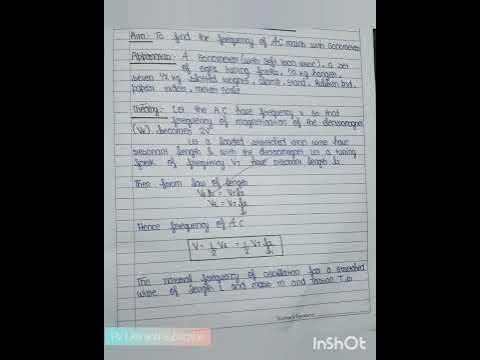 Aim:- To find the frequency of AC mains with Sonometer
Apparatus:- A Sonometer (with soft iron wire), a set
of eight tuning forks, 1/2 kg hanger,
seven 1/2 kg slotted weights, clamp, stand, Rubber Pad,
paper rider, meter scale
Theory:- Let the A.C have frequency v so that
frequency of magnetisation of the electromagnet
(Ve) becomes 2V
Let a loaded stretched iron wire have
resonant length l1 with the electromagnet. Let a tuning
fork of frequency VT have resonant length l2
Then from law of length
Ve l1 = VT l2
Ve = VT l2/l1
Hence frequency of AC
V = 1/2 Ve = 1/2 VT l2/l1
The natural frequency of oscillation for a stretched
wire of length l and mass m and tension T is
Pls Like and Subscribe
InShOt